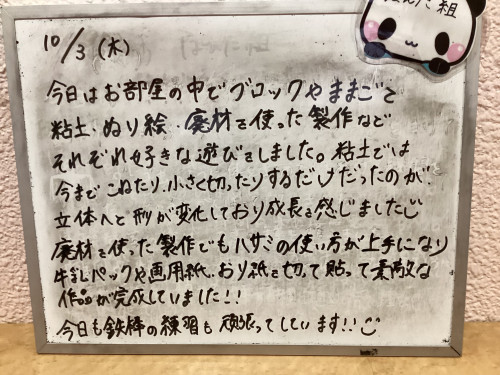 ぱんだ組
10/3(木)
今日はお部屋の中でブロックやままごと
粘土、ぬり絵、廃材を使った製作など
それぞれ好きな遊びをしました。粘土では
今までこねたり、小さく切ったりするだけだったのが、
立体へと形が変化しており成長を感じました
廃材を使った製作でもハサミの使い方が上手になり
牛乳パックや画用紙、おり紙を切って貼って素敵な
作品が完成していました!!
今日も鉄棒の練習も頑張ってしています!!